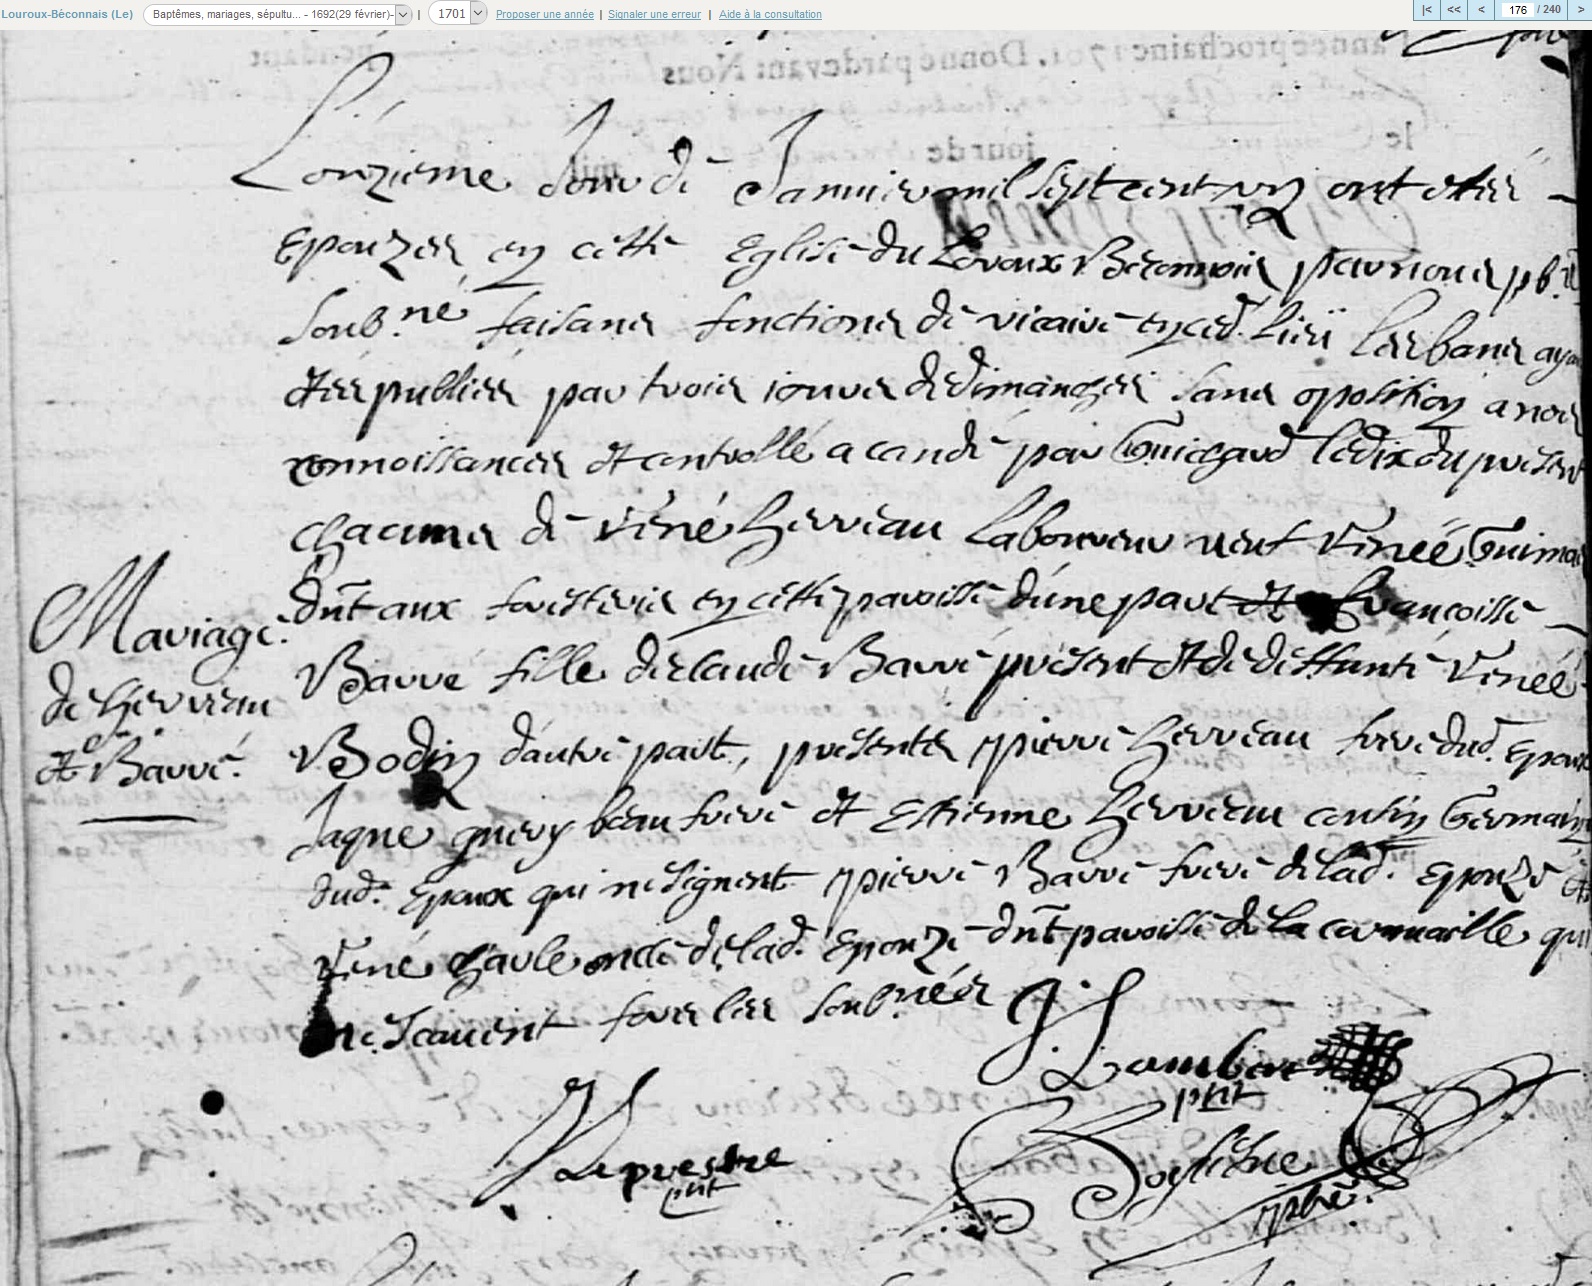 Louroux-Béconnais (Le) Baptêmes, mariages, sépultu... - 1692(29 février)- | 1701 Proposer une année | Signaler une erreur | Aide à la consultation |< << < 176 / 240 >
l'année prochaine 1701. Donné pardevant Nous
le jour de mil
Lonzieme Jour de Januier mil sept cent un ont étéés
Epouzés en cette Eglise du Lovoux Béconnois par nous pb.re
soub.né faisans fonctions de vicaire en ced. Lieü Les bans ayant
étées publiées par trois iours de dimanches sans oposition a nos
connoissances et controllé a candé par Guichard Le dix du present
chacuns de réné herveau Laboureur veuf Renéé Guimas
dm̃t aux foresteries en cette paroisse d'une part et Francoisse
Barré fille de claude Barré présent et de deffunte Renéé
Bodin d'autre part, présents pierre herveau frere dud. epoux
Jaque guery beau frere et Estienne herveau cousin Germain
dud. Epoux qui ne signent pierre Barré frere de lad. epouze et
René chasle oncle de lad. Epouze dm̃t paroisse de La cornuaille qui
ne scavent fors les soub.néés
Mariage
de herveau
et Barré.
J. Lambert
pnt
Leprestre
pnt
pbre